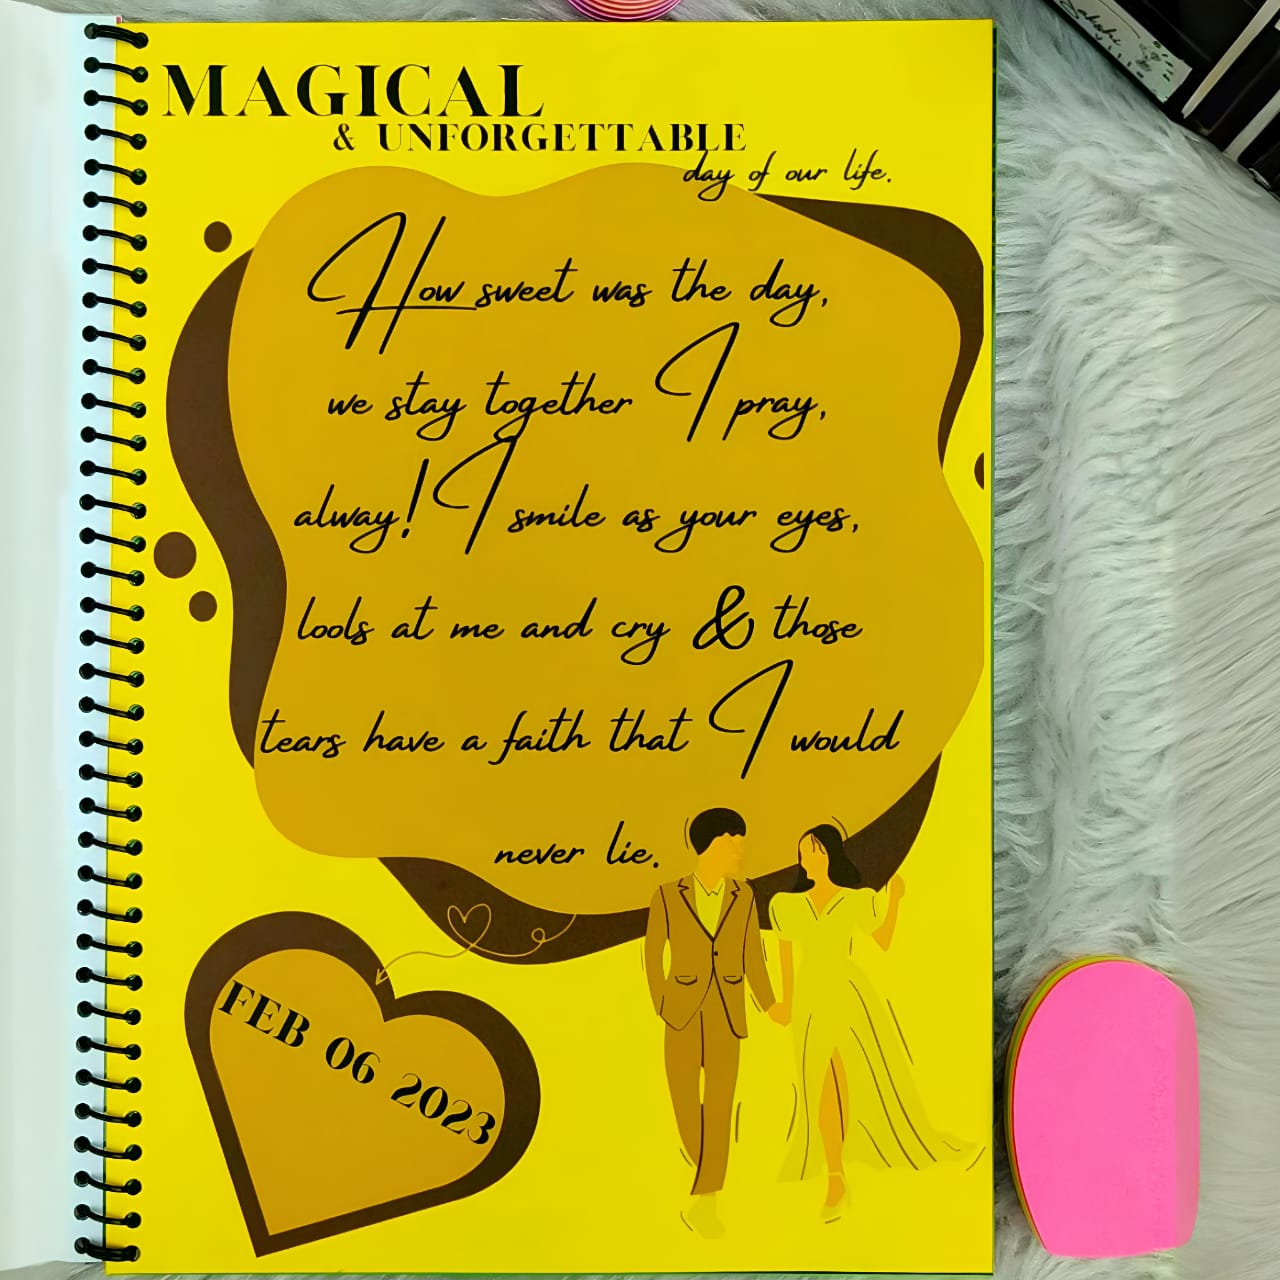 MAGICAL
& UNFORGETTABLE
day of our life.
How sweet was the day,
we stay together I pray,
alway! I smile as your eyes,
lools at me and cry & those
tears have a faith that I would
never lie.
FEB 06 2023